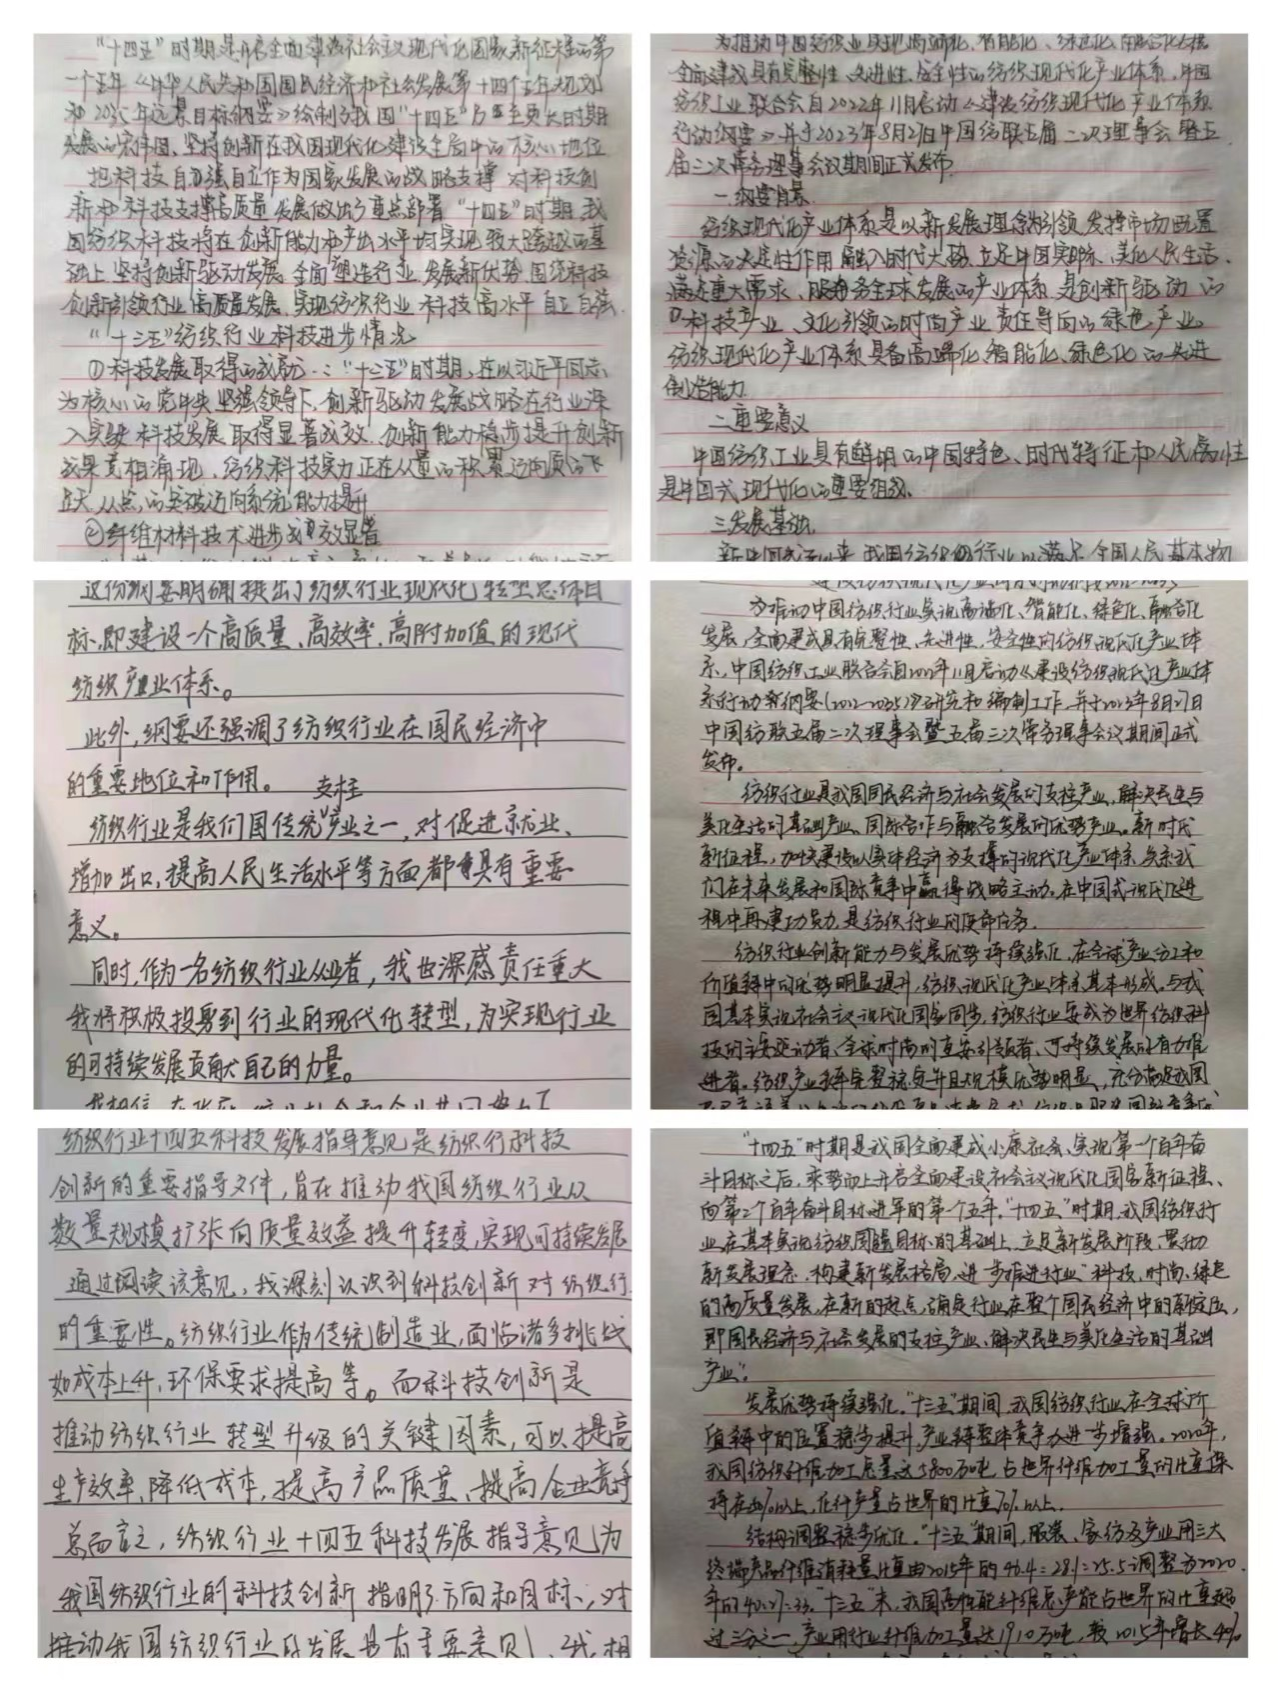 "十四五"时期是开启全面建设社会主义现代化国家新征程的第
一个五年《中华人民共和国国民经济和社会发展第十四个五年规划
和2035年远景目标纲要》绘制了我国"十四五"乃至更长时期
发展的宏伟图、坚持创新在我国现代化建设全局中的核心地位
把科技自立自强作为国家发展的战略支撑 对科技创
新和科技支撑高质量发展做出了重点部署 "十四五"时期 我
国纺织科技将在创新能力和产出水平均实现较大跨越的基
础上 坚持创新驱动发展 全面塑造行业发展新优势 围绕科技
创新引领行业高质量发展、实现纺织行业科技高水平自立自强
"十三五"纺织行业科技进步情况
①科技发展取得的成就："十三五"时期,在以习近平同志
为核心的党中央坚强领导下,创新驱动发展战略在行业深
入实施 科技发展取得显著成效.创新能力稳步提升创新
成果竞相涌现、纺织科技实力正在从量的积累迈向质的飞
跃,从点的突破迈向系统能力提升
②纤维材料技术进步成效显著
为推动中国纺织业实现高端化、智能化、绿色化、融合化发展
全面建成具有完整性、先进性、安全性的纺织现代化产业体系,中国
纺织工业联合会自2022年11月启动《建设纺织现代化产业体系
行动纲要》并于2023年8月21日中国纺联五届二次理事会暨五
届三次常务理事会议期间正式发布
一.纲要背景
纺织现代化产业体系是以新发展理念为引领 发挥市场配置
资源的决定性作用 融入时代大势、立足中国实际、美化人民生活、
满足重大需求、服务全球发展的产业体系 是创新驱动的
科技产业、文化引领的时尚产业 责任导向的绿色产业
纺织现代化产业体系具备高端化、智能化、绿色化的先进
制造能力.
二重要意义
中国纺织工业具有鲜明的中国特色、时代特征和人民属性
是中国式现代化的重要组成.
三发展基础.
新中国成立以来 我国纺织行业以满足全国人民基本物
这份纲要明确提出了纺织行业现代化转型总体目
标,即建设一个高质量、高效率,高附加值的现代
纺织产业体系。
此外,纲要还强调了纺织行业在国民经济中
的重要地位和作用。
支柱
纺织行业是我们国传统产业之一,对促进就业、
增加出口,提高人民生活水平等方面都具有重要
意义。
同时,作为一名纺织行业从业者,我也深感责任重大
我将积极投身到行业的现代化转型,为实现行业
的可持续发展贡献自己的力量。
为推动中国纺织行业实现高端化、智能化、绿色化、融合化
发展,全面建成具有完整性、先进性,安全性的纺织现代化产业体
系,中国纺织工业联合会自2022年11月启动《建设纺织现代化产业体
系行动纲要(2022-2035)》研究和编制工作,并于2023年8月21日
中国纺联五届二次理事会暨五届三次常务理事会议期间正式
发布。
纺织行业是我国国民经济与社会发展的支柱产业,解决民生与
美化生活的基础产业、国际合作与融合发展的优势产业。新时代
新征程,加快建设以实体经济为支撑的现代化产业体系,关系我
们在未来发展和国际竞争中赢得战略主动,在中国式现代化进
程中再建功勋,是纺织行业的使命任务.
纺织行业创新能力与发展优势持续强化,在全球产业分工和
价值链中的优势明显提升,纺织现代化产业体系基本形成,与我
国基本实现社会主义现代化国家同步,纺织行业要成为世界纺织科
技的主要驱动者、全球时尚的重要引领者、可持续发展的有力推
进者。纺织产业链完整稳定并且规模优势明显,充分满足我国
纺织行业十四五科技发展指导意见是纺织行科技
创新的重要指导文件,旨在推动我国纺织行业从
数量规模扩张向质量效益提升转变,实现可持续发展
通过阅读该意见,我深刻认识到科技创新对纺织行
的重要性。纺织行业作为传统制造业,面临诸多挑战
如成本上升,环保要求提高等。而科技创新是
推动纺织行业转型升级的关键因素,可以提高
生产效率,降低成本,提高产品质量,提高企业竞争
总而言之,纺织行业十四五科技发展指导意见为
我国纺织行业的科技创新指明了方向和目标,对
推动我国纺织行业的发展具有重要意见,我相
"十四五"时期是我国全面建成小康社会、实现第一个百年奋
斗目标之后,乘势而上开启全面建设社会主义现代化国家新征程、
向第二个百年奋斗目标进军的第一个五年。"十四五"时期,我国纺织行
业在基本实现纺织强国目标的基础上,立足新发展阶段,贯彻
新发展理念,构建新发展格局,进一步推进行业"科技、时尚、绿色"
的高质量发展,在新的起点,确定行业在整个国民经济中的新定位,
即国民经济与社会发展的支柱产业、解决民生与美化生活的基础
产业"。
发展优势持续强化。"十三五"期间,我国纺织行业在全球价
值链中的位置稳步提升,产业链整体竞争力进一步增强。2020年,
我国纺织纤维加工总量达5800万吨,占世界纤维加工量的比重保
持在50%以上,化纤产量占世界的比重70%以上.
结构调整稳步优化。"十三五"期间,服装、家纺及产业用三大
终端产品纤维消耗量比重由2015年的46.4:28.1:25.5调整为2020
年的40:27:33."十三五"末,我国高性能纤维总产能占世界的比重超
过三分之一,产业用行业纤维加工量达1910万吨,较2015年增长40%